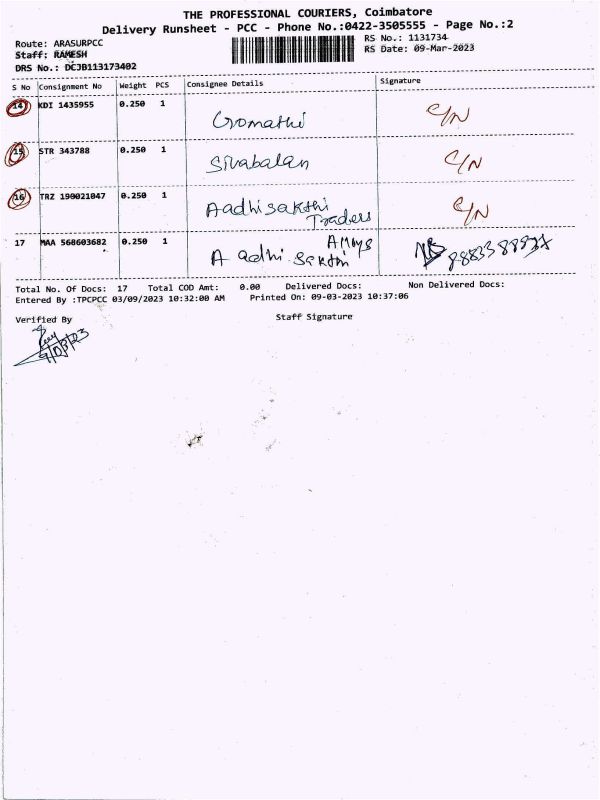 THE PROFESSIONAL COURIERS, Coimbatore
Delivery Runsheet - PCC - Phone No.:0422-3505555 - Page No.:2
Route: ARASURPCC
RS No.: 1131734
Staff: RAMESH
RS Date: 09-Mar-2023
DRS No.: DCJB113173402
S No Consignment No Weight PCS Consignee Details Signature
14 KDI 1435955 0.250 1 Gomathi C/N
15 STR 343788 0.250 1 Sivabalan C/N
16 TRZ 190021047 0.250 1 Aadhisakthi Traders C/N
17 MAA 568603682 0.250 1 Aadhi Sakthi
Total No. Of Docs: 17 Total COD Amt: 0.00 Delivered Docs: Non Delivered Docs:
Entered By :TPCPCC 03/09/2023 10:32:00 AM Printed On: 09-03-2023 10:37:06
Verified By Staff Signature
9/03/23